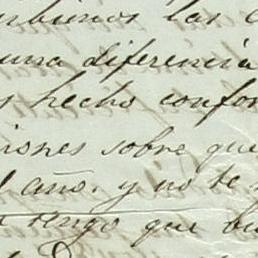 las
una diferencia
hecho confor
iones sobre que
año. y no te
tengo que